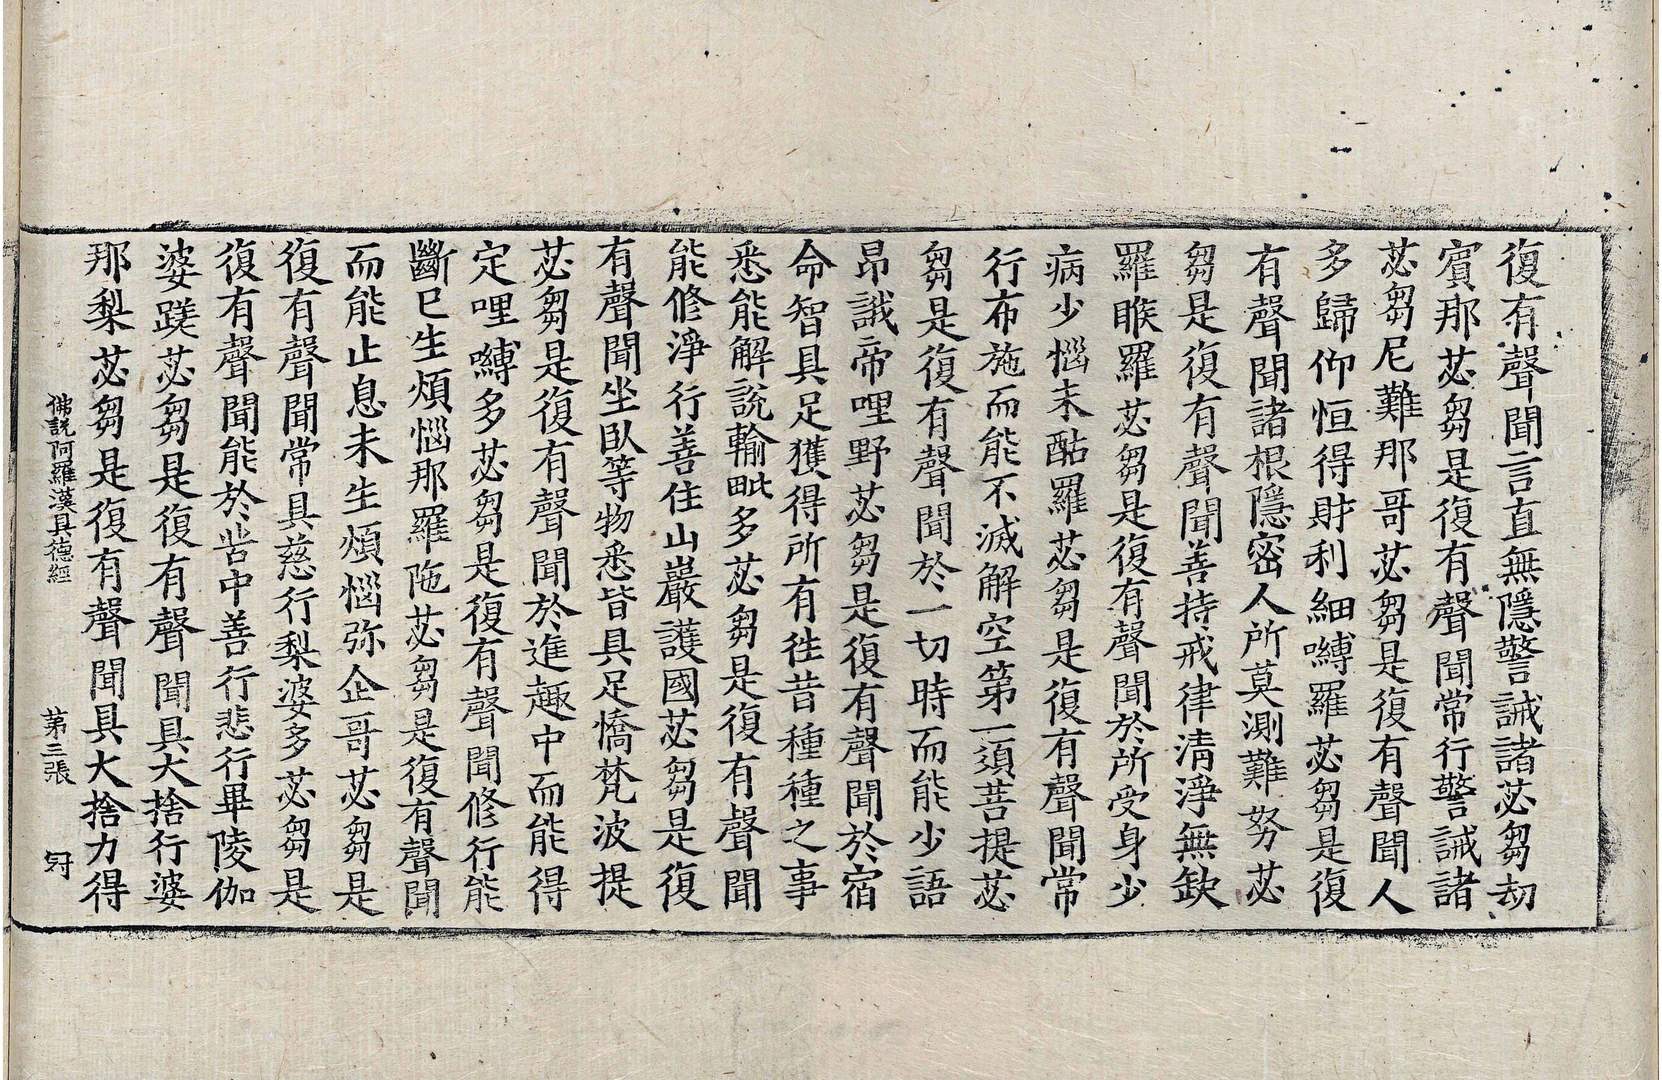 復有聲聞言直無隱警誡諸苾芻劫
賓那苾芻是復有聲聞常行警誡諸
苾芻尼難那哥苾芻是復有聲聞人
多歸仰恒得財利細嚩羅苾芻是復
有聲聞諸根隱密人所莫測難努苾
芻是復有聲聞善持戒律清淨無缺
羅睺羅苾芻是復有聲聞於所受身少
病少惱末酤羅苾芻是復有聲聞常
行布施而能不滅解空第一須菩提苾
芻是復有聲聞於一切時而能少語
昂誐帝哩野苾芻是復有聲聞於宿
命智具足獲得所有往昔種種之事
悉能解說輸毗多苾芻是復有聲聞
能修淨行善住山巖護國苾芻是復
有聲聞坐臥等物悉皆具足憍梵波提
苾芻是復有聲聞於進趣中而能得
定哩嚩多苾芻是復有聲聞修行能
斷已生煩惱那羅陁苾芻是復有聲聞
而能止息未生煩惱弥企哥苾芻是
復有聲聞常具慈行梨婆多苾芻是
復有聲聞能於苦中善行悲行畢陵伽
婆蹉苾芻是復有聲聞具大捨行婆
那梨苾芻是復有聲聞具大捨力得
佛說阿羅漢具德經 第三張 𡨥